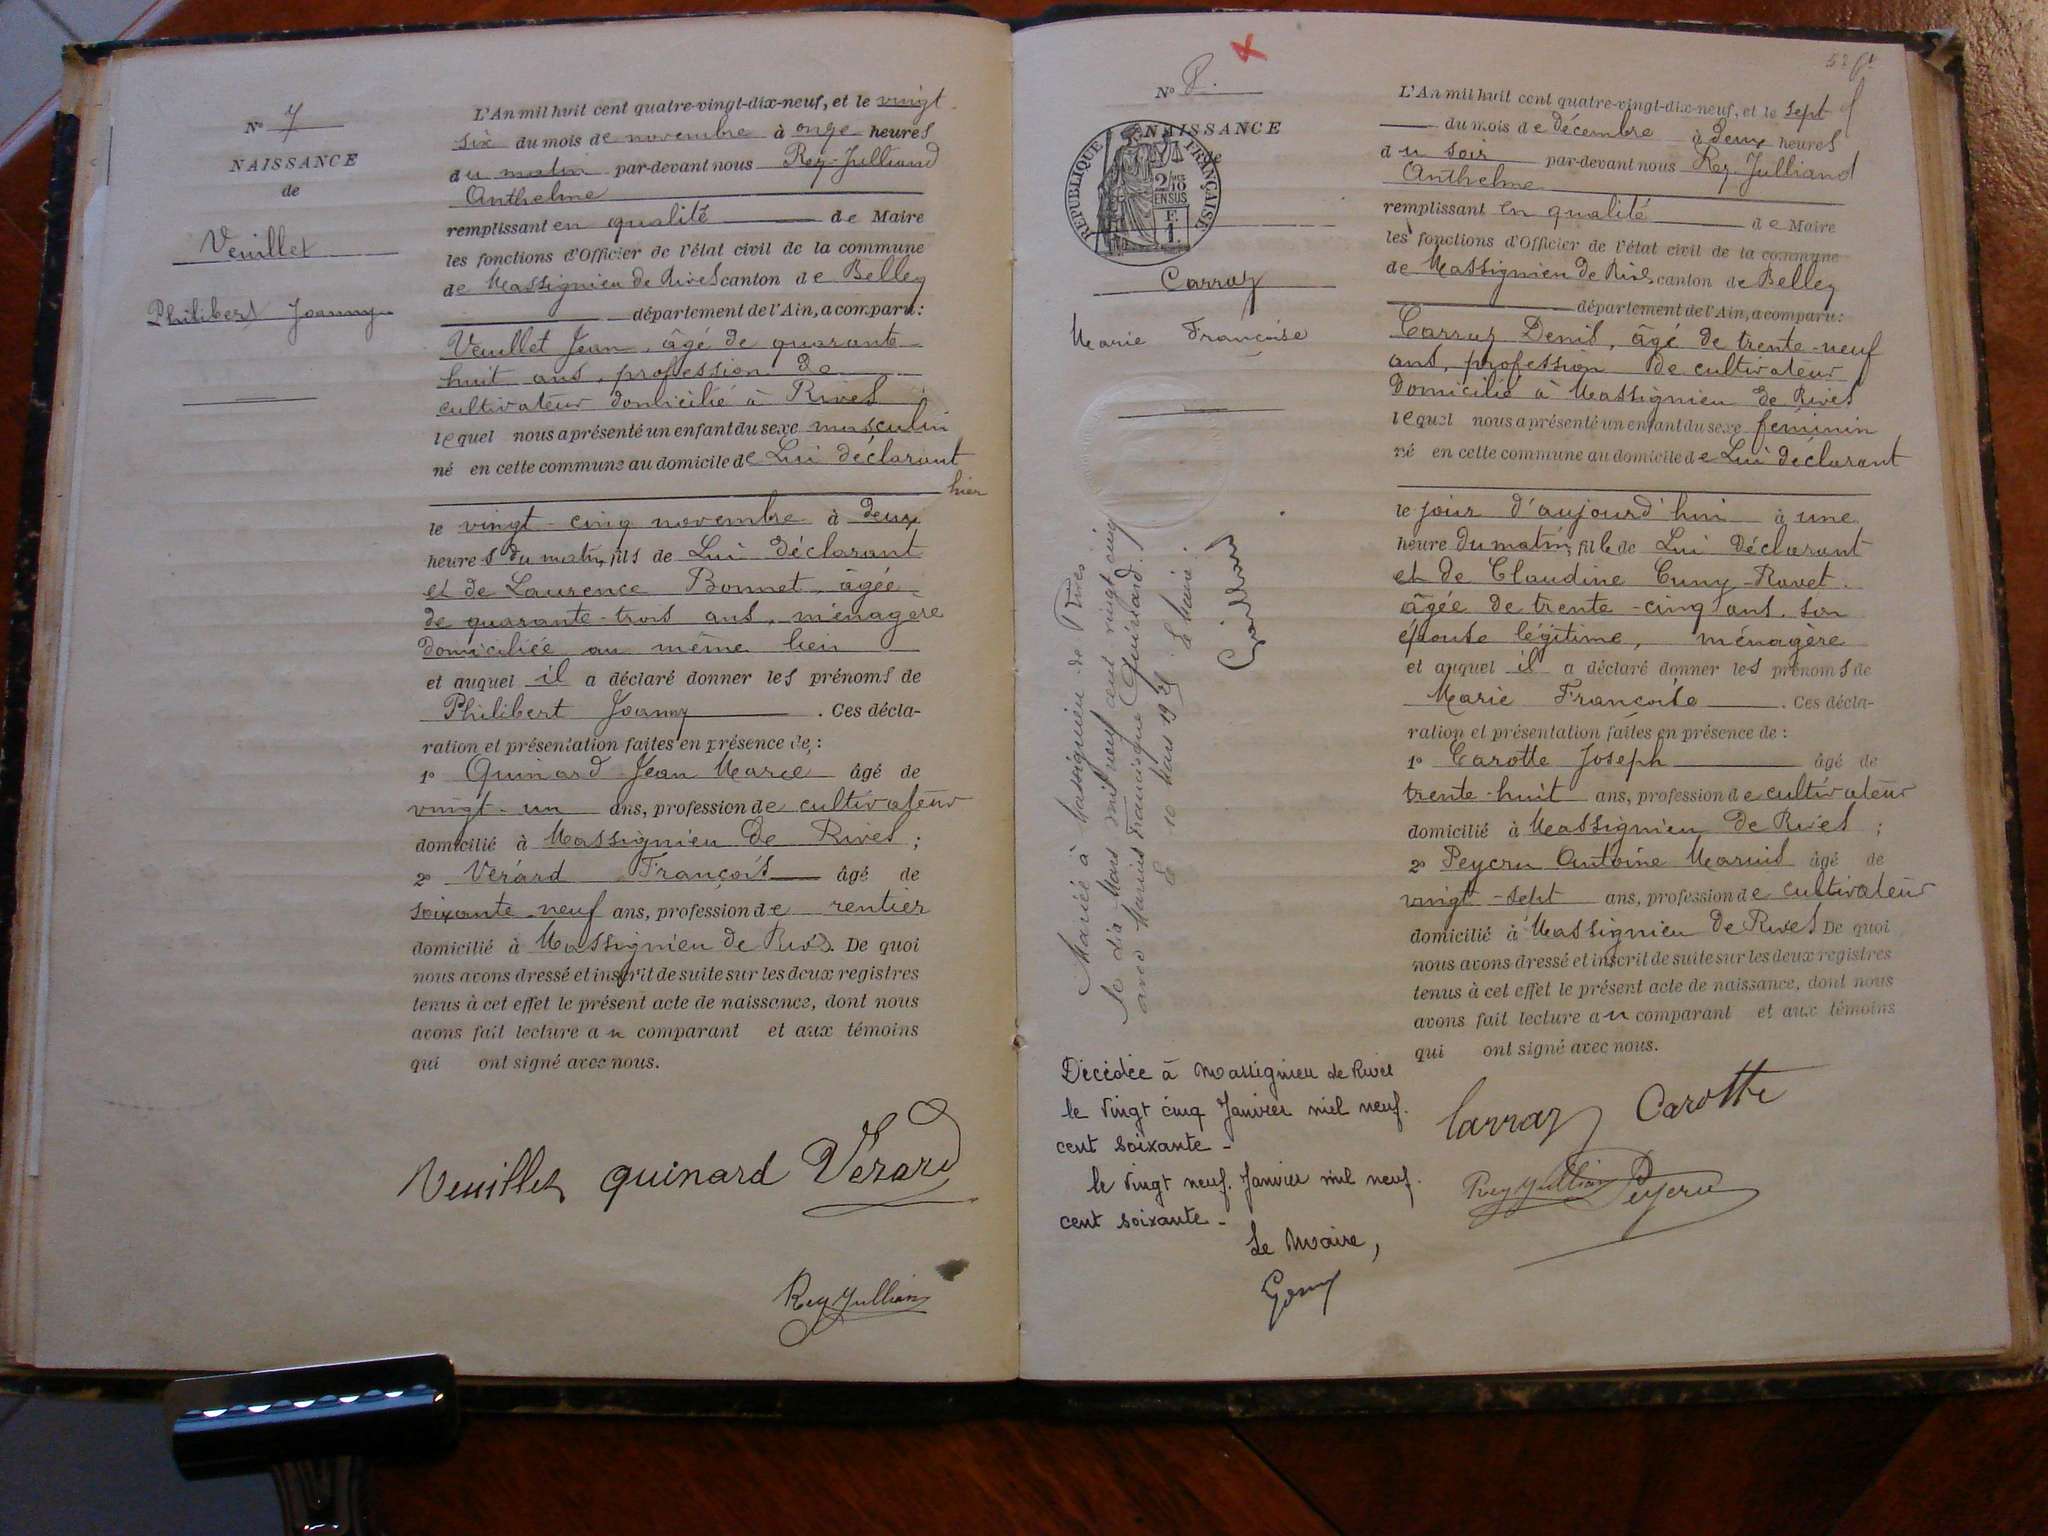 Nº 7
NAISSANCE
de
Veuillet
Philibert Joanny
L'An mil huit cent quatre-vingt-dix-neuf, et le vingt
six du mois de novembre à onze heures
du matin par-devant nous Rey-Julliand
Anthelme
remplissant en qualité de Maire
les fonctions d'Officier de l'état civil de la commune
de Massignieu de Rives canton de Belley
département de l'Ain, a comparu:
Veuillet Jean, âgé de quarante
huit ans, profession de
cultivateur domicilié à Rives
lequel nous a présenté un enfant du sexe masculin
né en cette commune au domicile de Lui déclarant
hier
le vingt-cinq novembre à deux
heures du matin, fils de Lui déclarant
et de Laurence Bonnet, âgée
de quarante-trois ans, ménagère
domiciliée au même lieu
et auquel il a déclaré donner les prénoms de
Philibert Joanny. Ces décla-
ration et présentation faites en présence de :
1º Quinard Jean Marce âgé de
vingt-un ans, profession de cultivateur
domicilié à Massignieu de Rives ;
2º Vérard François âgé de
soixante-neuf ans, profession de rentier
domicilié à Massignieu de Rives. De quoi
nous avons dressé et inscrit de suite sur les deux registres
tenus à cet effet le présent acte de naissance, dont nous
avons fait lecture au comparant et aux témoins
qui ont signé avec nous.
Veuillet quinard Vérard
Rey Jullian
Nº 8.
NAISSANCE
RÉPUBLIQUE FRANÇAISE
2/10
EN SUS
F.
1.
Carraz
Marie Françoise
Mariée à Massignieu de Rives
le dix Mars mil neuf cent vingt cinq
avec Marius Francisque Guinard.
Le 10 Mars 1925
Le Maire
Décédée à Massignieu de Rives
le vingt cinq Janvier mil neuf.
cent soixante -
le vingt neuf. Janvier mil neuf.
cent soixante -
Le Maire,
L'An mil huit cent quatre-vingt-dix-neuf, et le sept
du mois de décembre à deux heures
du soir par-devant nous Rey-Julliand
Anthelme
remplissant en qualité de Maire
les fonctions d'Officier de l'état civil de la commune
de Massignieu de Rives canton de Belley
département de l'Ain, a comparu:
Carraz Denis, âgé de trente-neuf
ans, profession de cultivateur
domicilié à Massignieu de Rives
lequel nous a présenté un enfant du sexe féminin
né en cette commune au domicile de Lui déclarant
le jour d'aujourd'hui à une
heure du matin, fille de Lui déclarant
et de Claudine Cuny-Ravet.
âgée de trente-cinq ans. son
épouse légitime, ménagère
et auquel il a déclaré donner les prénoms de
Marie Françoise. Ces décla-
ration et présentation faites en présence de :
1º Carotte Joseph âgé de
trente-huit ans, profession de cultivateur
domicilié à Massignieu de Rives ;
2º Peycru Antoine Marius âgé de
vingt-sept ans, profession de cultivateur
domicilié à Massignieu de Rives De quoi
nous avons dressé et inscrit de suite sur les deux registres
tenus à cet effet le présent acte de naissance, dont nous
avons fait lecture au comparant et aux témoins
qui ont signé avec nous.
Carraz Carotte
Rey Jullian Peycru